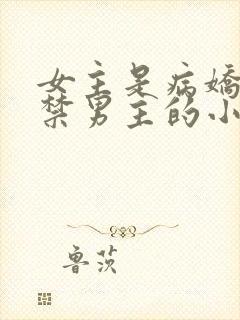 女主是病娇
禁男主的小
鲁茨